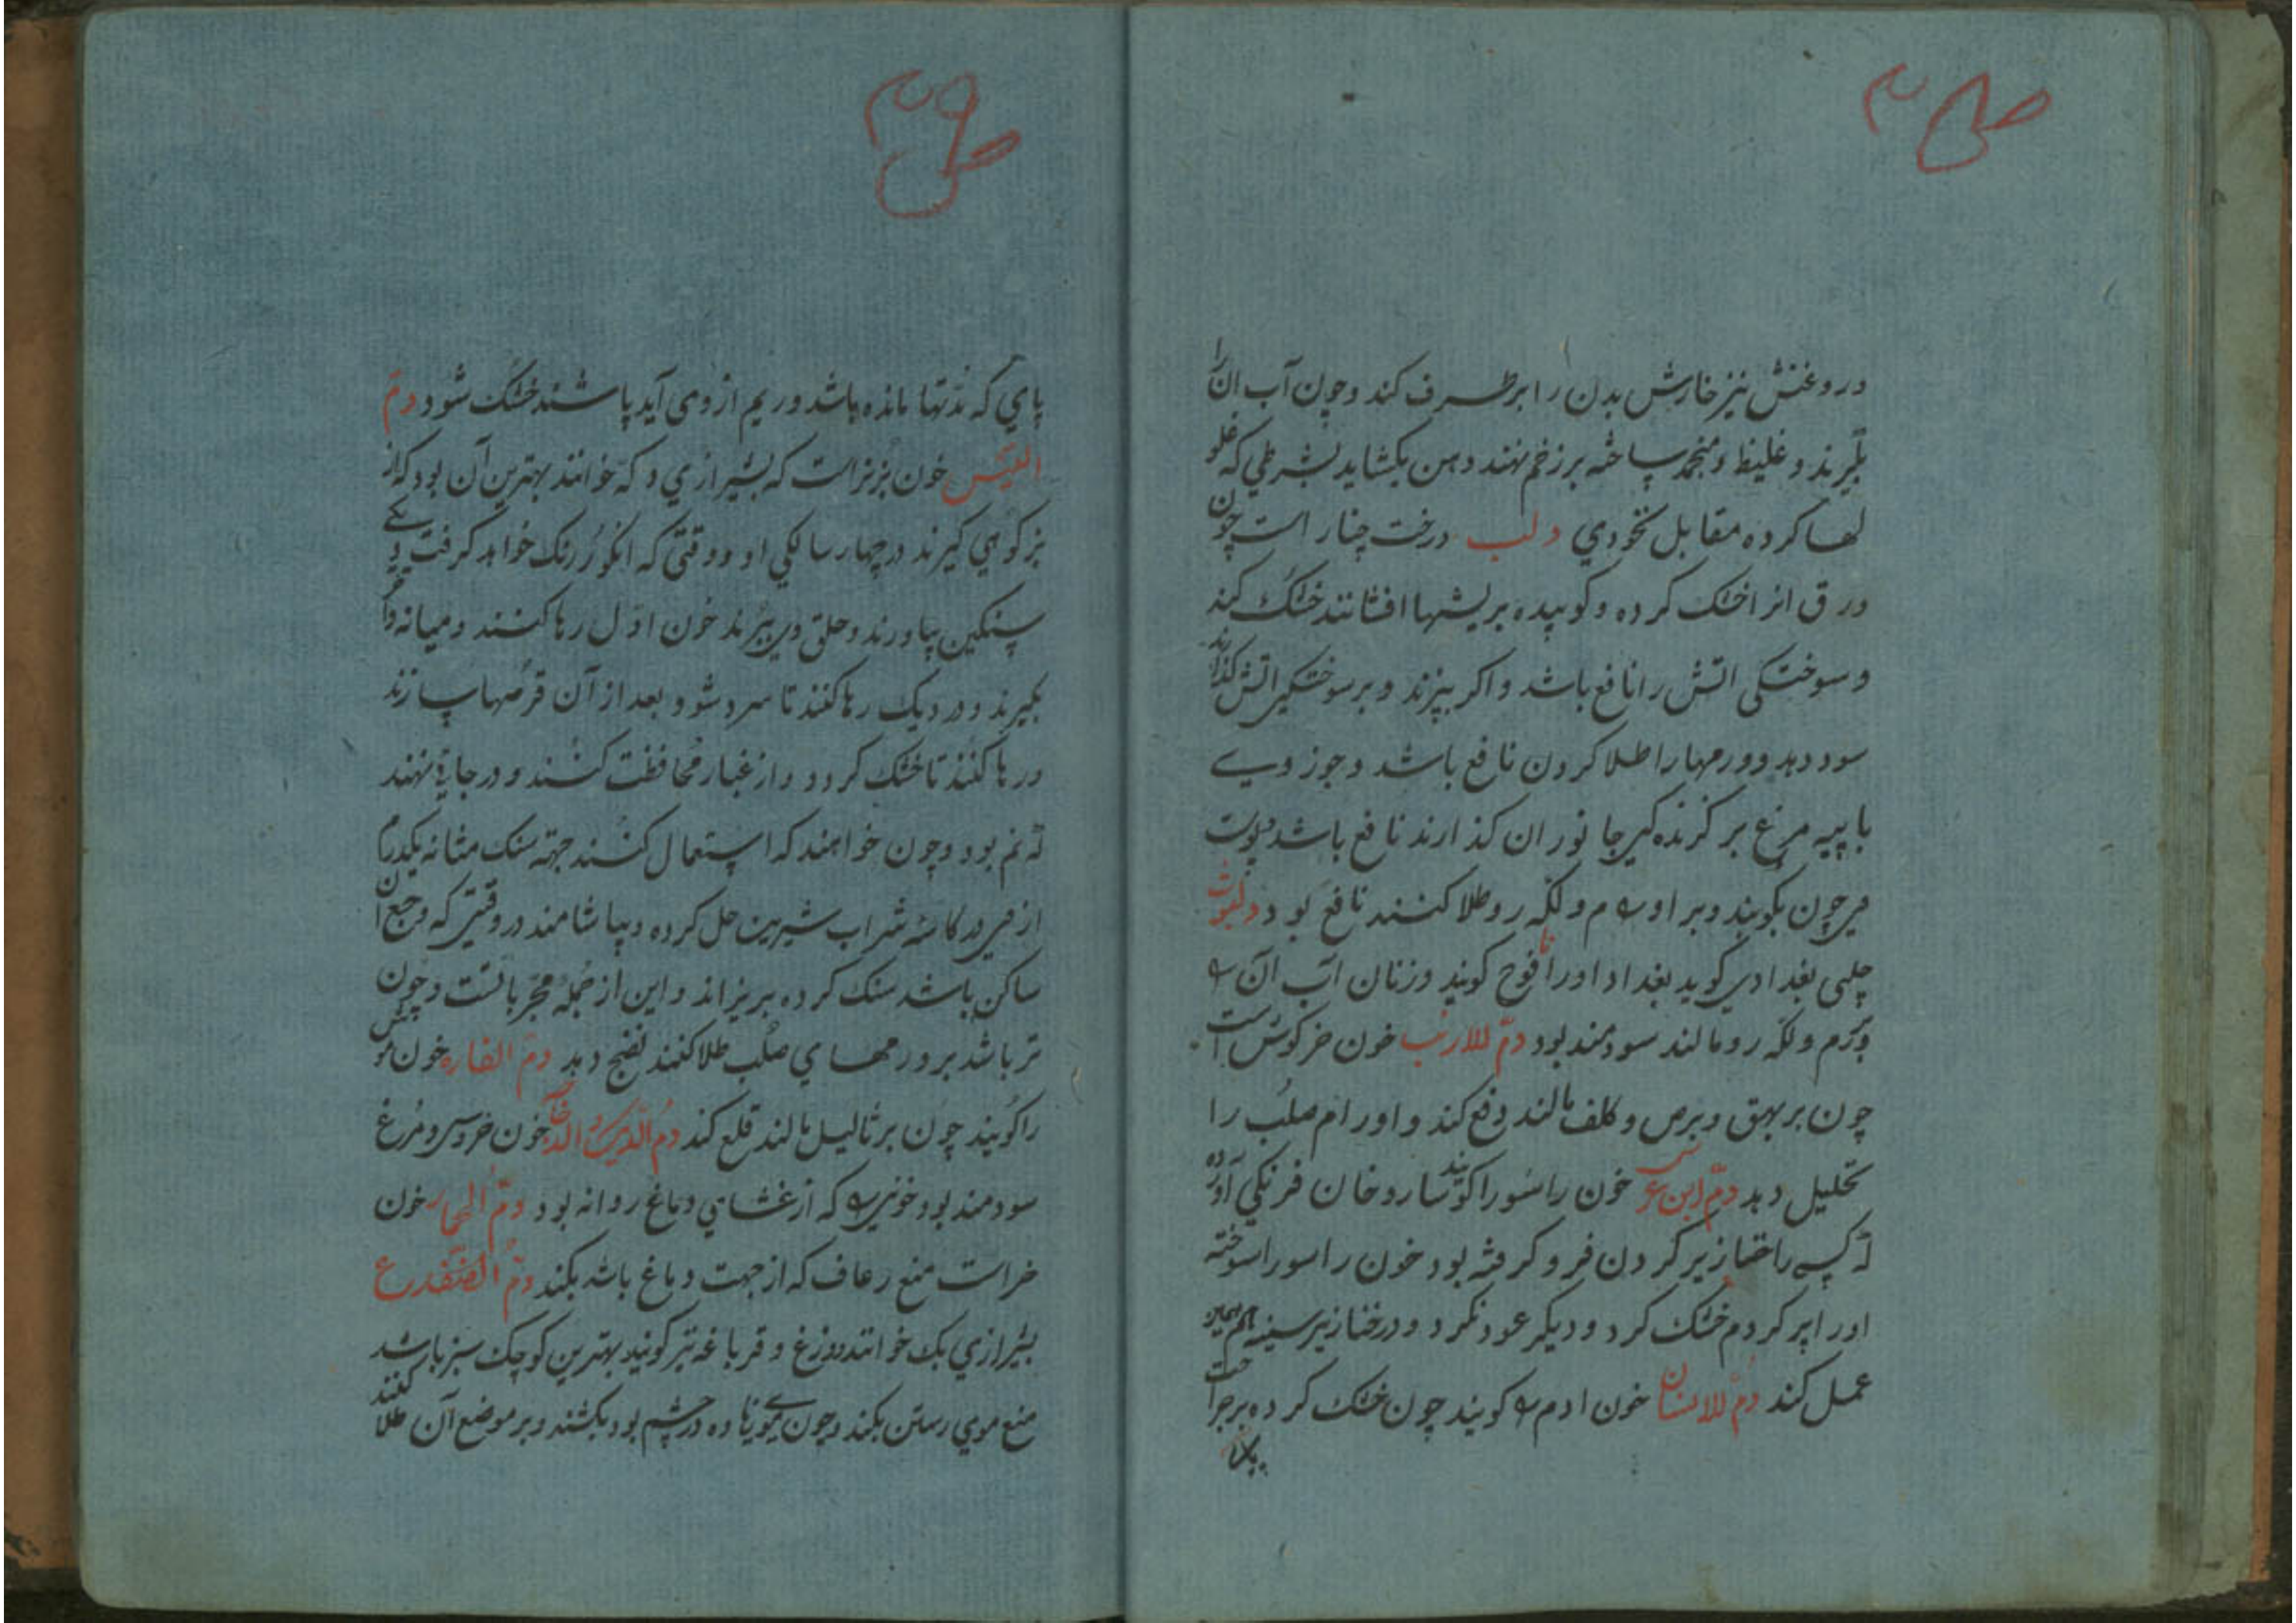 در روغنش نیز خارش بدن را برطرف کند و چون آب انرا
بگیرند و غلیظ و منجمد ساخته بر زخم نهند دهن بکشاید بشرطی که غلو
لها کرده مقابل نخودی دلب درخت چنار است چون
ورق انرا خشک کرده و کوبیده بریشها افشانند خشک کند
و سوختکی اتش را نافع باشد و اکر بپزند و بر سوختکی اتش کذارند
سود دهد و ورمها را طلا کردن نافع باشد و جوز وی
با پیه مرغ بر کزنده کی جانوران کذارند نافع باشد پوست
وی چون بکوبند و بر اورام و لکه رو طلا کنند نافع بود دلبوث
چلبی بغدادی کوید بغداد او را نافوخ کویند و زنان آب آن را
بر ورم و لکه رو مالند سودمند بود دمّ للارنب خون خرکوش است
چون بر بهق و برص و کلف مالند دفع کند و اورام صلب را
تحلیل دهد دمّ ابن عرس خون راسو را کویند سارو خان فرنکی آورده
که کسی را خناز زیر کردن فرو کرفته بود خون راسو را سوخته
او را پر کردم خشک کرد و دیکر عود نکرد و در خنازیر سینه هم همین
عمل کند دمّ للانسان خون ادم را کویند چون خشک کرده بر جراحت
پای که تنها مانده باشد و ریم از وی آید پاشند خشک شود دمّ
التیس خون بز نر است که بشیرازی د که خوانند بهترین آن بود که از
بز کوهی کیرند در چهار سالکی او و وقتی که انکور رنک خواهد کرفت دیکی
سنکین بیاورند و حلق وی ببرند خون اوّل رها کنند و میانه را
بکیرند و در دیک رها کنند تا سرد شود و بعد از آن قرصها سازند
و رها کنند تا خشک کردد و از غبار محافظت کنند و در جائی نهند
که نم بود و چون خواهند که استعمال کنند جهة سنک مثانه یکدرم
از وی در کاسه شراب شیرین حل کرده و بیاشامند در وقتی که وجع ان
ساکن باشد سنک کرده بریزاند و این از جمله مجرباتست و چون
تر باشد بر ورمهای صلب طلا کنند نضج دهد دمّ الفاره خون موش
را کویند چون بر ثالیل مالند قلع کند دمُ الدّیک و الدجاج خون خروس و مرغ
سودمند بود خونی را که از غشای دماغ روانه بود دمّ الحمار خون
خر است منع رعاف که از جهت دماغ باشد بکند دمّ الضفدع
بشیرازی بک خوانند و وزغ و قرباغه نیز کویند بهترین کوچک سبز باشد
منع موی رستن بکند و چون موی زیاده در چشم بود بکشند و بر موضع آن طلا کنند